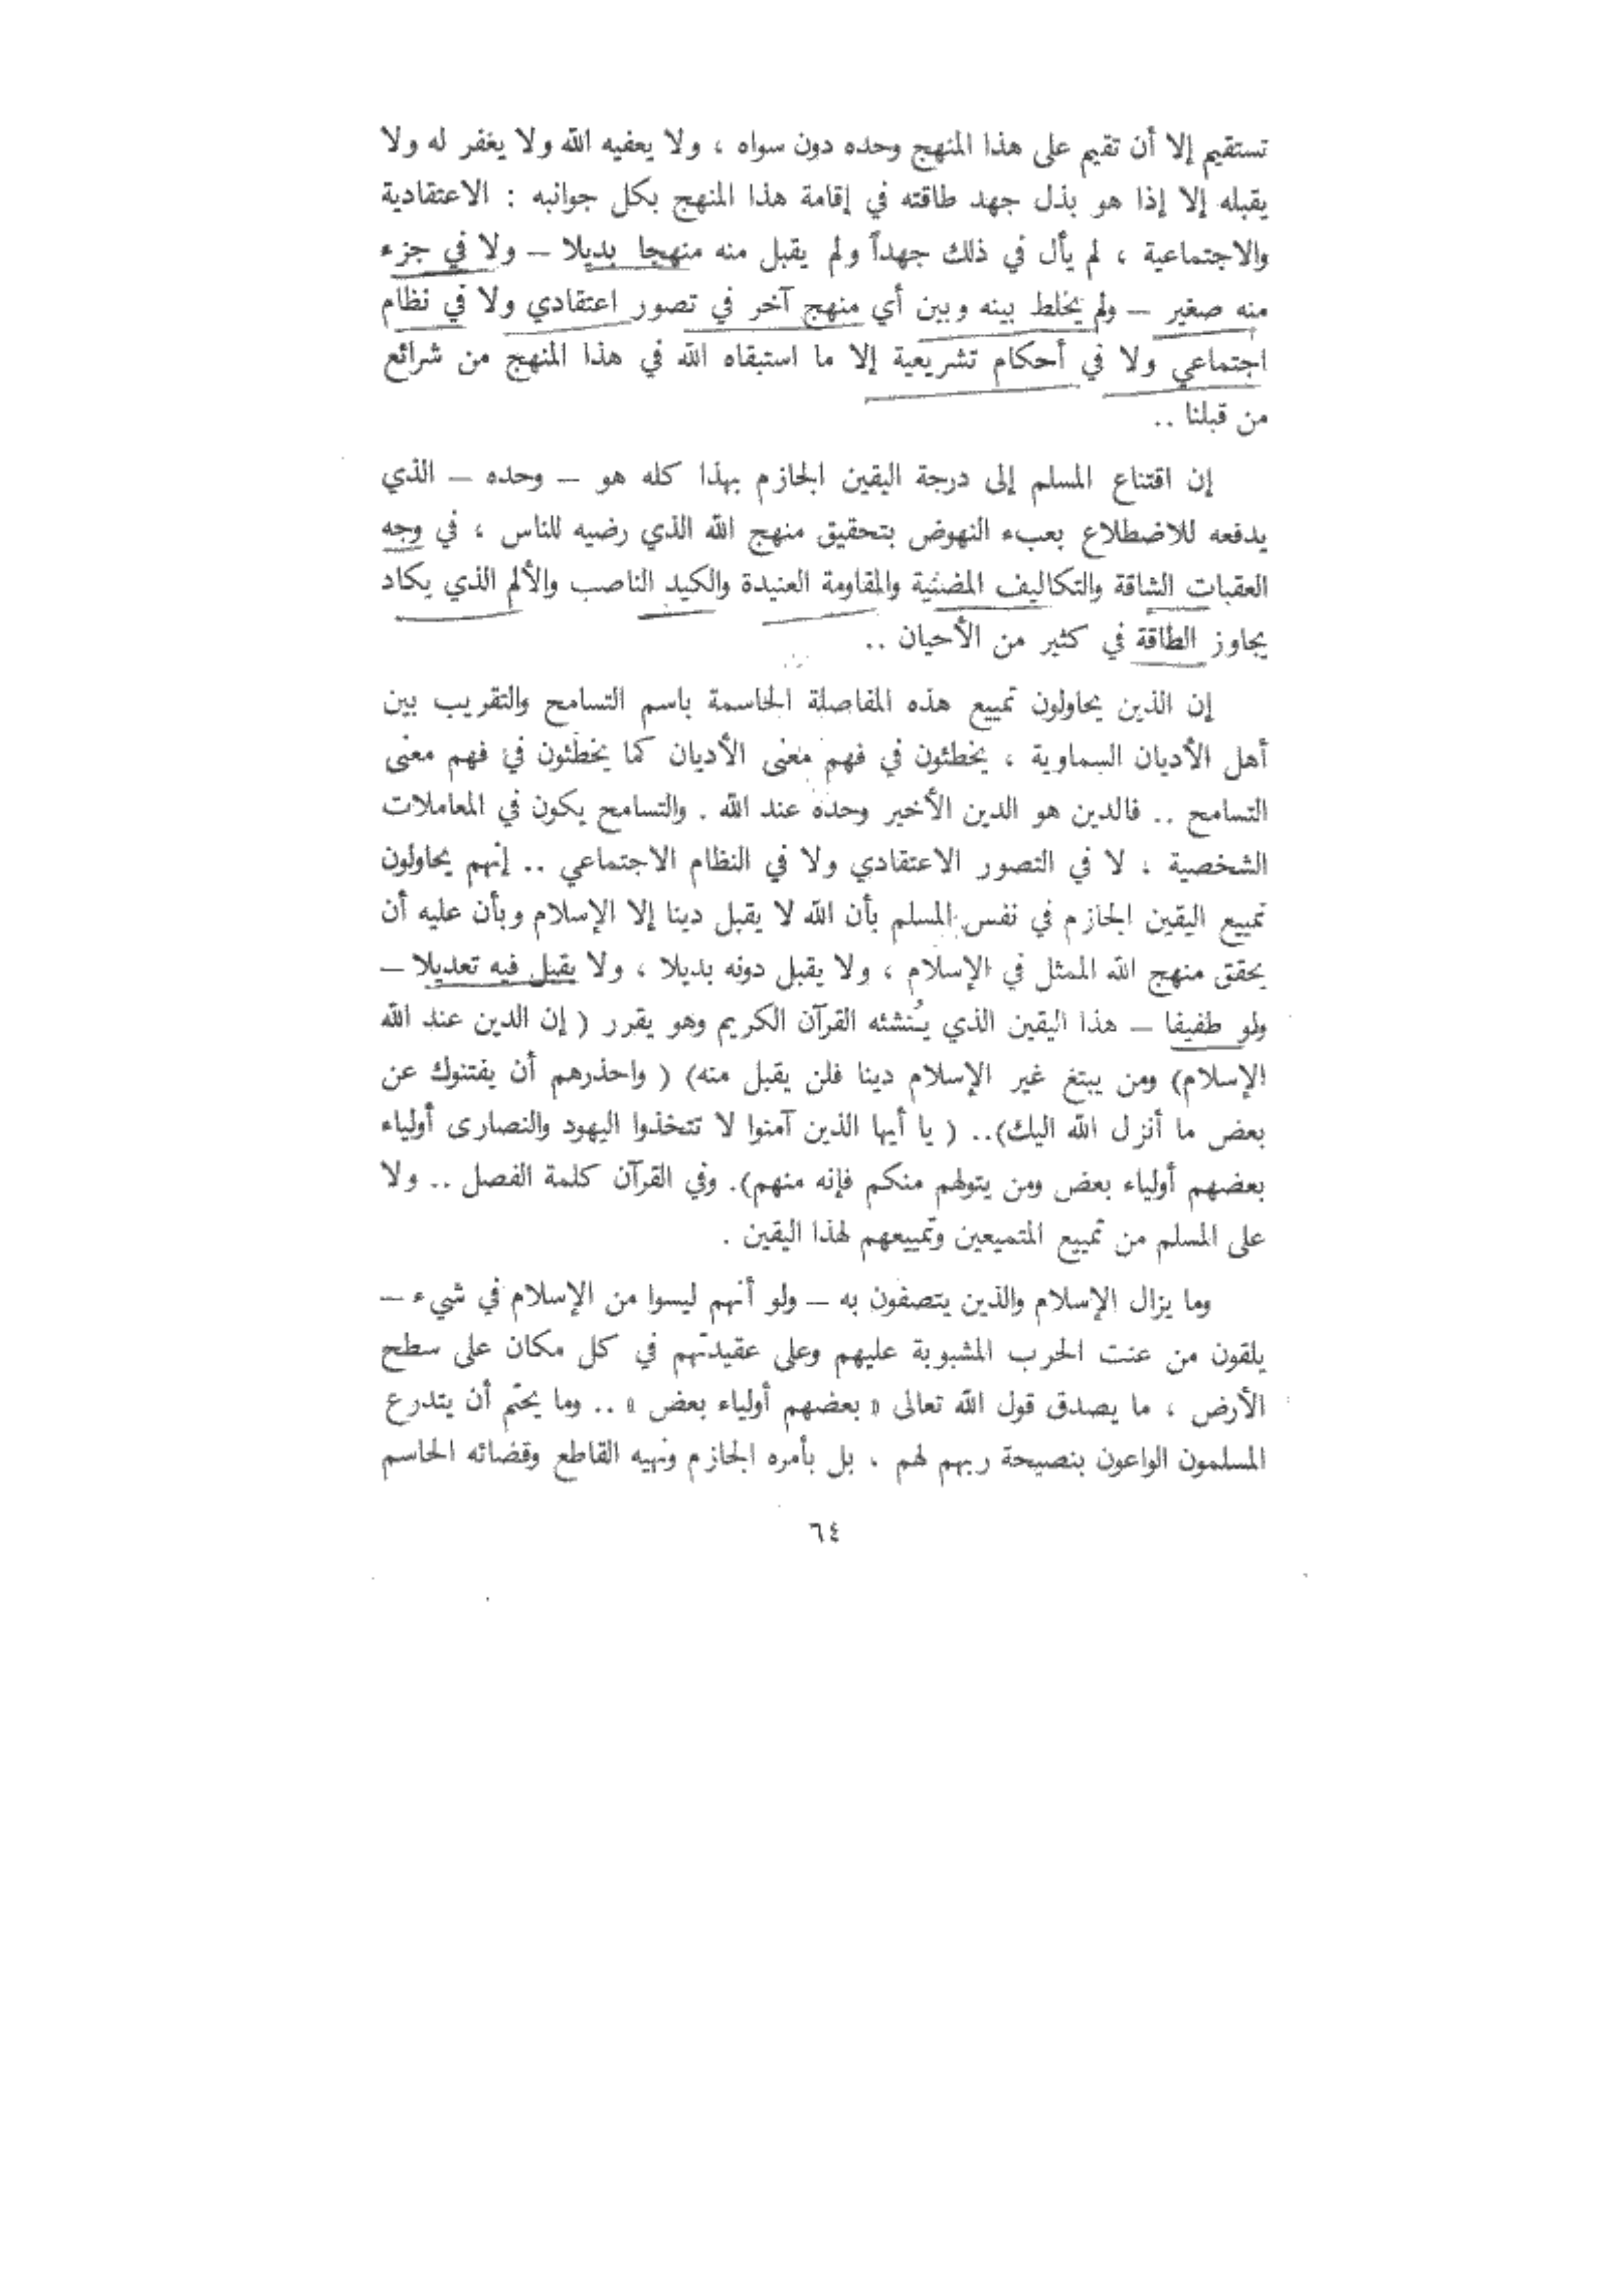 تستقيم إلا أن تقيم على هذا المنهج وحده دون سواه ، ولا يعفيه الله ولا يغفر له ولا
يقبله إلا إذا هو بذل جهد طاقته في إقامة هذا المنهج بكل جوانبه : الاعتقادية
والاجتماعية ، لم يأل في ذلك جهداً ولم يقبل منه منهجا بديلا – ولا في جزء
منه صغير – ولم يخلط بينه وبين أي منهج آخر في تصور اعتقادي ولا في نظام
اجتماعي ولا في أحكام تشريعية إلا ما استبقاه الله في هذا المنهج من شرائع
من قبلنا ..
إن اقتناع المسلم إلى درجة اليقين الجازم بهذا كله هو – وحده – الذي
يدفعه للاضطلاع بعبء النهوض بتحقيق منهج الله الذي رضيه للناس ، في وجه
العقبات الشاقة والتكاليف المضنية والمقاومة العنيدة والكيد الناصب والألم الذي يكاد
يجاوز الطاقة في كثير من الأحيان ..
إن الذين يحاولون تمييع هذه المفاصلة الحاسمة باسم التسامح والتقريب بين
أهل الأديان السماوية ، يخطئون في فهم معنى الأديان كما يخطئون في فهم معنى
التسامح .. فالدين هو الدين الأخير وحده عند الله . والتسامح يكون في المعاملات
الشخصية ، لا في التصور الاعتقادي ولا في النظام الاجتماعي .. إنهم يحاولون
تمييع اليقين الجازم في نفس المسلم بأن الله لا يقبل دينا إلا الإسلام وبأن عليه أن
يحقق منهج الله الممثل في الإسلام ، ولا يقبل دونه بديلا ، ولا يقبل فيه تعديلا –
ولو طفيفا – هذا اليقين الذي يُنشئه القرآن الكريم وهو يقرر ( إن الدين عند الله
الإسلام) ومن يبتغ غير الإسلام دينا فلن يقبل منه) ( واحذرهم أن يفتنوك عن
بعض ما أنزل الله اليك).. ( يا أيها الذين آمنوا لا تتخذوا اليهود والنصارى أولياء
بعضهم أولياء بعض ومن يتولهم منكم فإنه منهم). وفي القرآن كلمة الفصل .. ولا
على المسلم من تمييع المتميعين وتمييعهم لهذا اليقين .
وما يزال الإسلام والذين يتصفون به – ولو أنهم ليسوا من الإسلام في شيء –
يلقون من عنت الحرب المشبوبة عليهم وعلى عقيدتهم في كل مكان على سطح
الأرض ، ما يصدق قول الله تعالى « بعضهم أولياء بعض » .. وما يحتّم أن يتدرع
المسلمون الواعون بنصيحة ربهم لهم ، بل بأمره الجازم ونهيه القاطع وقضائه الحاسم
٦٤